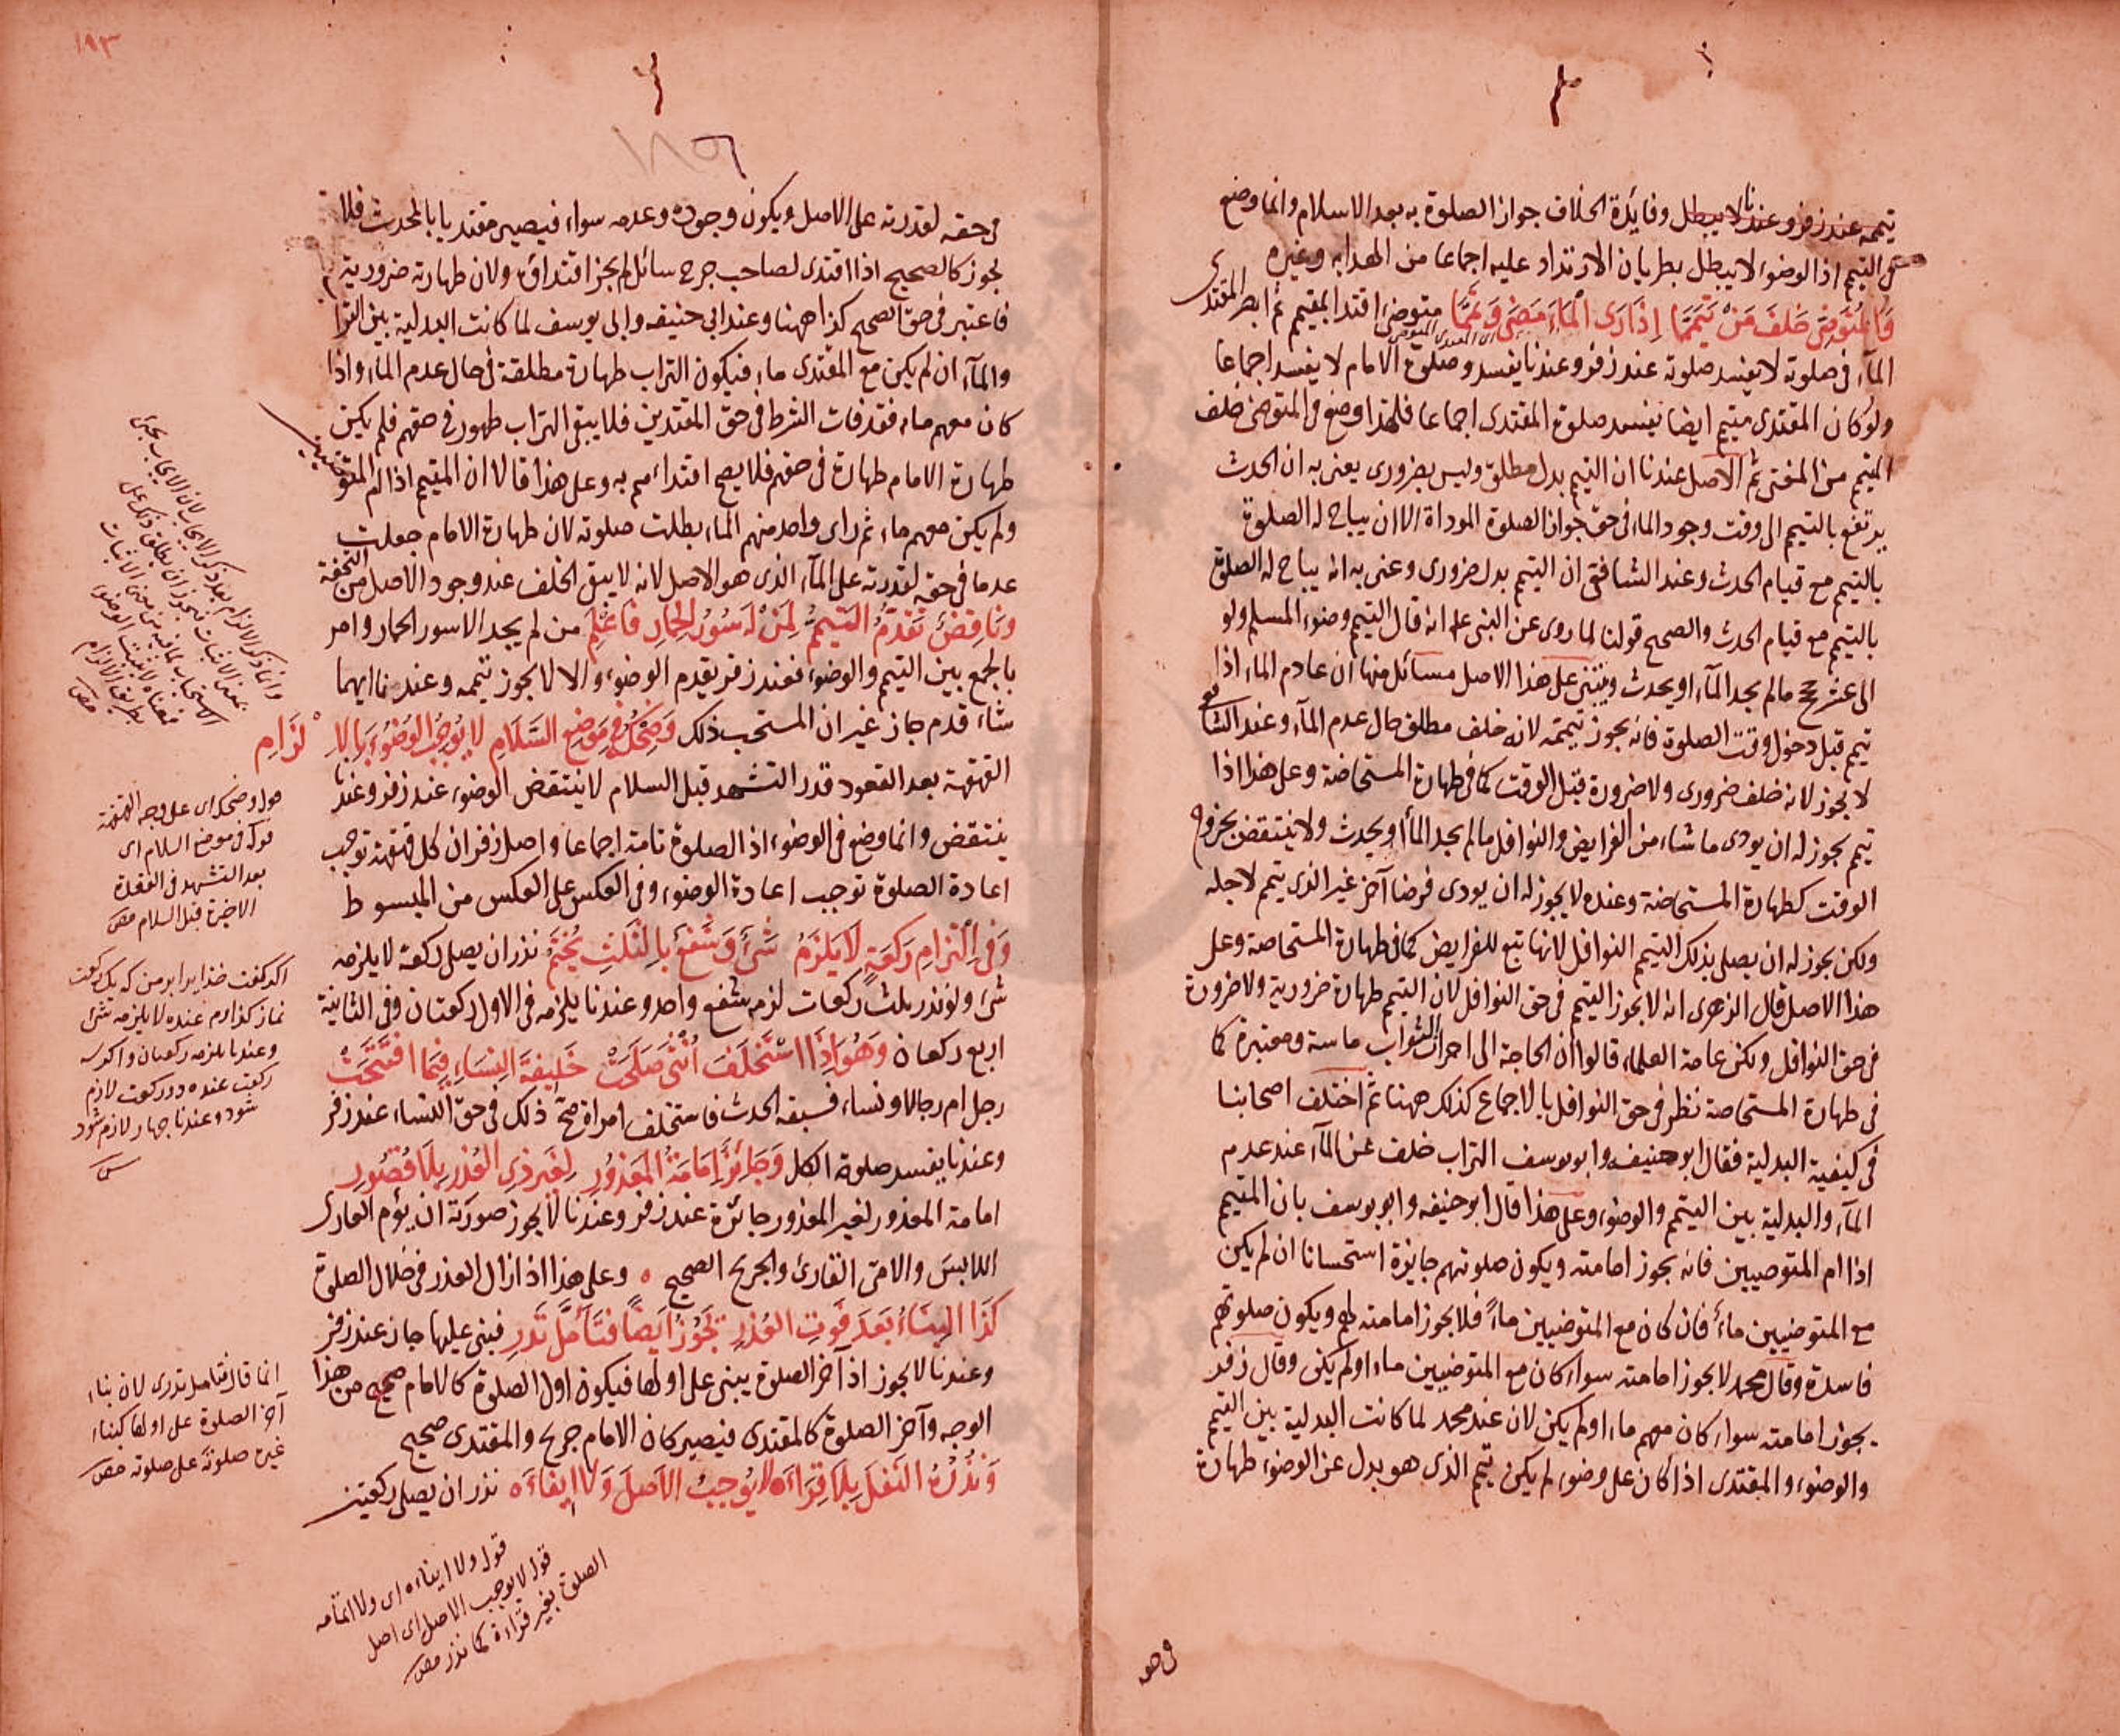 تيممه عند زفر وعندنا لا يبطل وفايدة الخلاف جواز الصلوة به بعد الاسلام وانما وضع
في التيمم اذ الوضوء لا يبطل بطريان الارتداد عليه اجماعا من الهدايه وغيره
وَالمُتَوَضِّى خَلفَ مَنْ تَيَمَّمَا اِذَا رَاى المَاءَ مَضَى وَتَمَّمَا متوضئ اقتدا بمتيمم ثم ابصر المقتدى
المآء في صلوته لا تفسد صلوته عند زفر وعندنا يفسد وصلوة الامام لا يفسد اجماعا
ولو كان المقتدى متيمم ايضا تفسد صلوة المقتدى اجماعا فلهذا وضع في المتوضئ خلف
المتيمم من المغنى ثم الاصل عندنا ان التيمم بدل مطلق وليس بضرورى يعنى به ان الحدث
يرتفع بالتيمم الى وقت وجود الماء في حق جواز الصلوة الموداة الا ان يباح له الصلوة
بالتيمم مع قيام الحدث وعند الشافعى ان التيمم بدل ضرورى وعنى به انه يباح له الصلوة
بالتيمم مع قيام الحدث والصحيح قولنا لما روى عن النبى انه قال التيمم وضوء المسلم ولو
الى عشر حجج مالم يجد المآء او يحدث ويبتنى على هذا الاصل مسائل منها ان عادم الماء اذا
تيمم قبل دخول وقت الصلوة فانه يجوز تيممه لانه خلف مطلق حال عدم المآء وعند الشافعى
لا يجوز لانه خلف ضرورى ولا ضرورة قبل الوقت كما في طهارة المستحاضة وعلى هذا اذا
تيمم يجوز له ان يودى ما شاء من الفرايض والنوافل مالم يجد الماء او يحدث ولا ينتقض بخروج
الوقت كطهارة المستحاضة وعنده لا يجوز له ان يودى فرضا آخر غير الذى تيمم لاجله
ولكن يجوز له ان يصلى بذلك التيمم النوافل لانها تبع للفرايض كما في طهارة المستحاضة وعلى
هذا الاصل قال الزهرى انه لا يجوز التيمم في حق النوافل لان التيمم طهارة ضرورية ولا ضرورة
في حق النوافل ولكن عامة العلماء قالوا ان الحاجة الى احراز الثواب ماسة ومعتبرة كما
في طهارة المستحاضة نظر في حق النوافل بالاجماع كذلك ههنا ثم اختلف اصحابنا
في كيفية البدلية فقال ابو حنيفه وابو يوسف التراب خلف عن المآء عند عدم
المآء والبدلية بين التيمم والوضوء وعلى هذا قال ابو حنيفه وابو يوسف بان المتيمم
اذا ام المتوضيين فانه يجوز امامته ويكون صلوتهم جايزة استحسانا ان لم يكن
مع المتوضيين ماءً فان كان مع المتوضيين ماءً فلا يجوز امامته لهم ويكون صلوتهم
فاسدة وقال محمد لا يجوز امامته سواء كان مع المتوضيين ماء او لم يكن وقال زفر
يجوز امامته سواء كان معهم ماء او لم يكن لان عند محمد لما كانت البدلية بين التيمم
والوضوء والمقتدى اذا كان على وضوء لم يكن تيمم الذى هو بدل عن الوضوء طهارة
في حقه
١٩٣
١٨٦
في حقه لقدرته على الاصل ويكون وجوده وعدمه سواء فيصير مقتديا بالمحدث فلا
يجوز كالصحيح اذا اقتدى لصاحب جرح سائل لم يجز اقتداؤه ولان طهارته ضرورية
فاعتبر في حق الصحيح كذا ههنا وعند ابى حنيفه وابى يوسف لما كانت البدلية بين التراب
والمآء ان لم يكن مع المقتدى ماء فيكون التراب طهارة مطلقة في حال عدم الماء واذا
كان معهم ماء فقد فات الشرط في حق المقتدين فلا يبقى التراب طهور في حقهم فلم يكن
طهارة الامام طهارة في حقهم فلا يصح اقتداءهم به وعلى هذا قالا ان المتيمم اذا ام المتوضيين
ولم يكن معهم ماء ثم راى واحد منهم الماء بطلت صلوته لان طهارة الامام جعلت
عدما في حقه لقدرته على المآء الذى هو الاصل لانه لا يبقى الخلف عند وجود الاصل من التحفة
وَنَاقِضٌ تَقَدُّمُ التَيَمُّمِ لِمَنْ لَهُ سُؤرُ الحِمَارِ فَاعْلَمِ من لم يجد الا سور الحمار وامر
بالجمع بين التيمم والوضوء فعند زفر يقدم الوضوء والا لا يجوز تيممه وعندنا ايهما
شاء قدم جاز غير ان المستحب ذلك وَضِحْكُهُ في مَوضِعِ السَّلَامِ لا يُوجِبُ الوُضُوءَ بالالْزَامِ
القهقهة بعد القعود قدر التشهد قبل السلام لا ينتقض الوضوء عند زفر وعندنا
ينتقض وانما وضع في الوضوء اذ الصلوة تامة اجماعا واصل زفر ان كل قهقهة توجب
اعادة الصلوة توجب اعادة الوضوء وفي العكس على العكس من المبسوط
وَفي اِلْتِزَامِ رَكعَةٍ لَا يَلزَمُ شَئٌ وَشَفْعٌ بِالثَلَثِ يُخْتَمُ نذر ان يصلى ركعة لا يلزمه
شئ ولو نذر بلث ركعات لزم شفع واحد وعندنا يلزمه في الاول ركعتان وفي الثانية
اربع ركعات وَهُوَ اِذَا اسْتَخلَفَ اُنْثَى صَلَحَتْ خَلِيفَةَ النِسَاءِ فِيمَا افتَتَحَتْ
رجل ام رجالا ونساء فسبقه الحدث فاستخلف امراة صح ذلك في حق النساء عند زفر
وعندنا يفسد صلوة الكل وَجَائِزٌ اِمَامَةُ المَعذُورِ لِغَيرِ ذِى العُذرِ بِلَا قُصُورِ
امامة المعذور لغير المعذور جائزة عند زفر وعندنا لا يجوز صورته ان يؤم العارى
اللابس والامى القارئ والجريح الصحيح ٥ وعلى هذا اذا زال العذر في خلال الصلوة
كَذَا البِنَاءُ بَعدَ فَوتِ العُذرِ يَجُوزُ اَيضًا فَتَاَمَّل تَدرِ فبنى عليها جاز عند زفر
وعندنا لا يجوز اذ آخر الصلوة يبنى على اولها فيكون اول الصلوة كالامام صحيح من هذا
الوجه وآخر الصلوة كالمقتدى فيصير كان الامام جريح والمقتدى صحيح
وَنَذرُهُ النَفلَ بِلَا قِرَاءَه لا يُوجِبُ الاَصلَ وَلا ايفَاءَه نذر ان يصلى ركعتين
قوله وضحكه اى على وجه القهقهة
قوله في موضع السلام اى
بعد التشهد في القعدة
الاخيرة قبل السلام مص
اكر كفت خدايرا بر من كه يك ركعت
نماز كذارم عنده لا يلزمه شئ
وعندنا يلزمه ركعتان واكر سه
ركعت عنده دو ركعت لازم
شود وعندنا جهار لازم شود
انما قال فتامل تدرى لان بناء
آخر الصلوة على اولها كبناء
غيره صلوته على صلوته مص
قوله ولا ايفاءه اى ولا اتمامه
قوله لا يوجب الاصل اى اصل
الصلوة بغير قراءة كما نذر مص